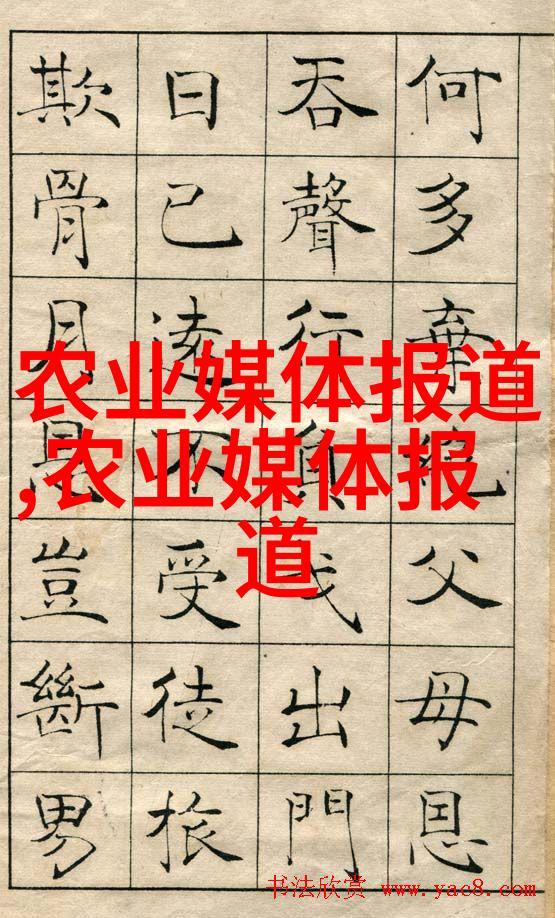 何多棄絶父母恩
吞聲行負戈出門
日已遠不受徒旅
欺骨月恩豈斷男
农业媒体报道
,农业媒体报
道
书法欣赏 www.yac8.com